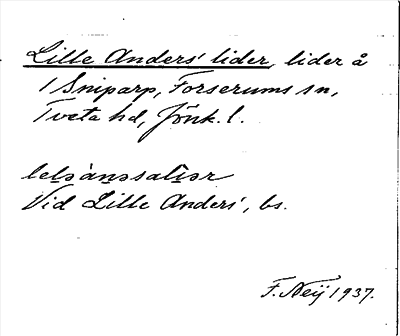 Lille Anders' lider, lider å
1 Sniparp, Forserums sn,
Tveta hd, Jönk. l.
Vid Lille Anders', bs.
F. Neij 1937.